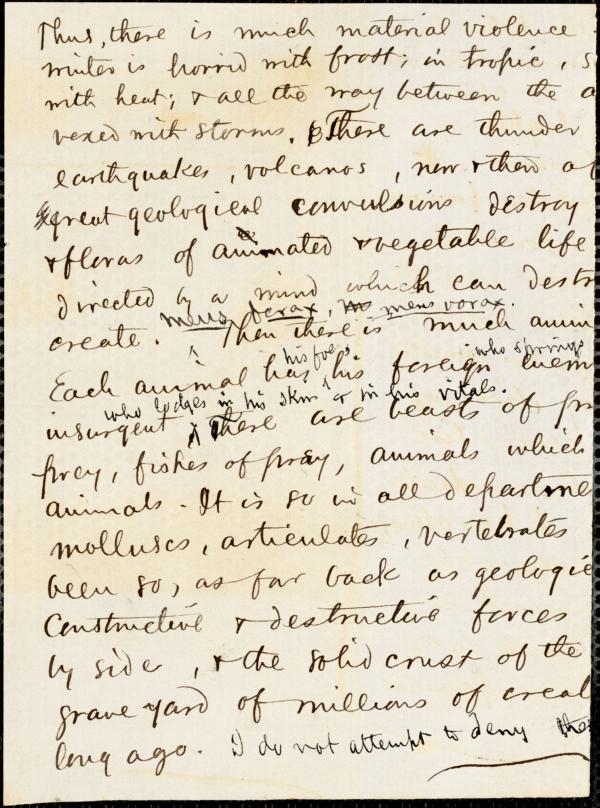 Thus, there is much material violence
winter is horrid with frost; in tropic,
with heat; & all the way between the
vexed with storms. There are thunder
earthquakes, volcanos, now & then
great geological convulsions destroy
& floras of animated & vegetable life
directed by a mind which can destr
mens ferax, mens vorax.
create. Then there is much anim
his foes, who springs
Each animal has his foreign enem
who lodges in his skin or in his vitals.
insurgent. There are beasts of pr
prey, fishes of pray, animals which
animals. It is so in all departme
molluscs, articulates, vertebrates
been so, as far back as geologic
Constructive & destructive forces
by side, & the solid crust of the
grave yard of millions of creat
long ago. I do not attempt to deny